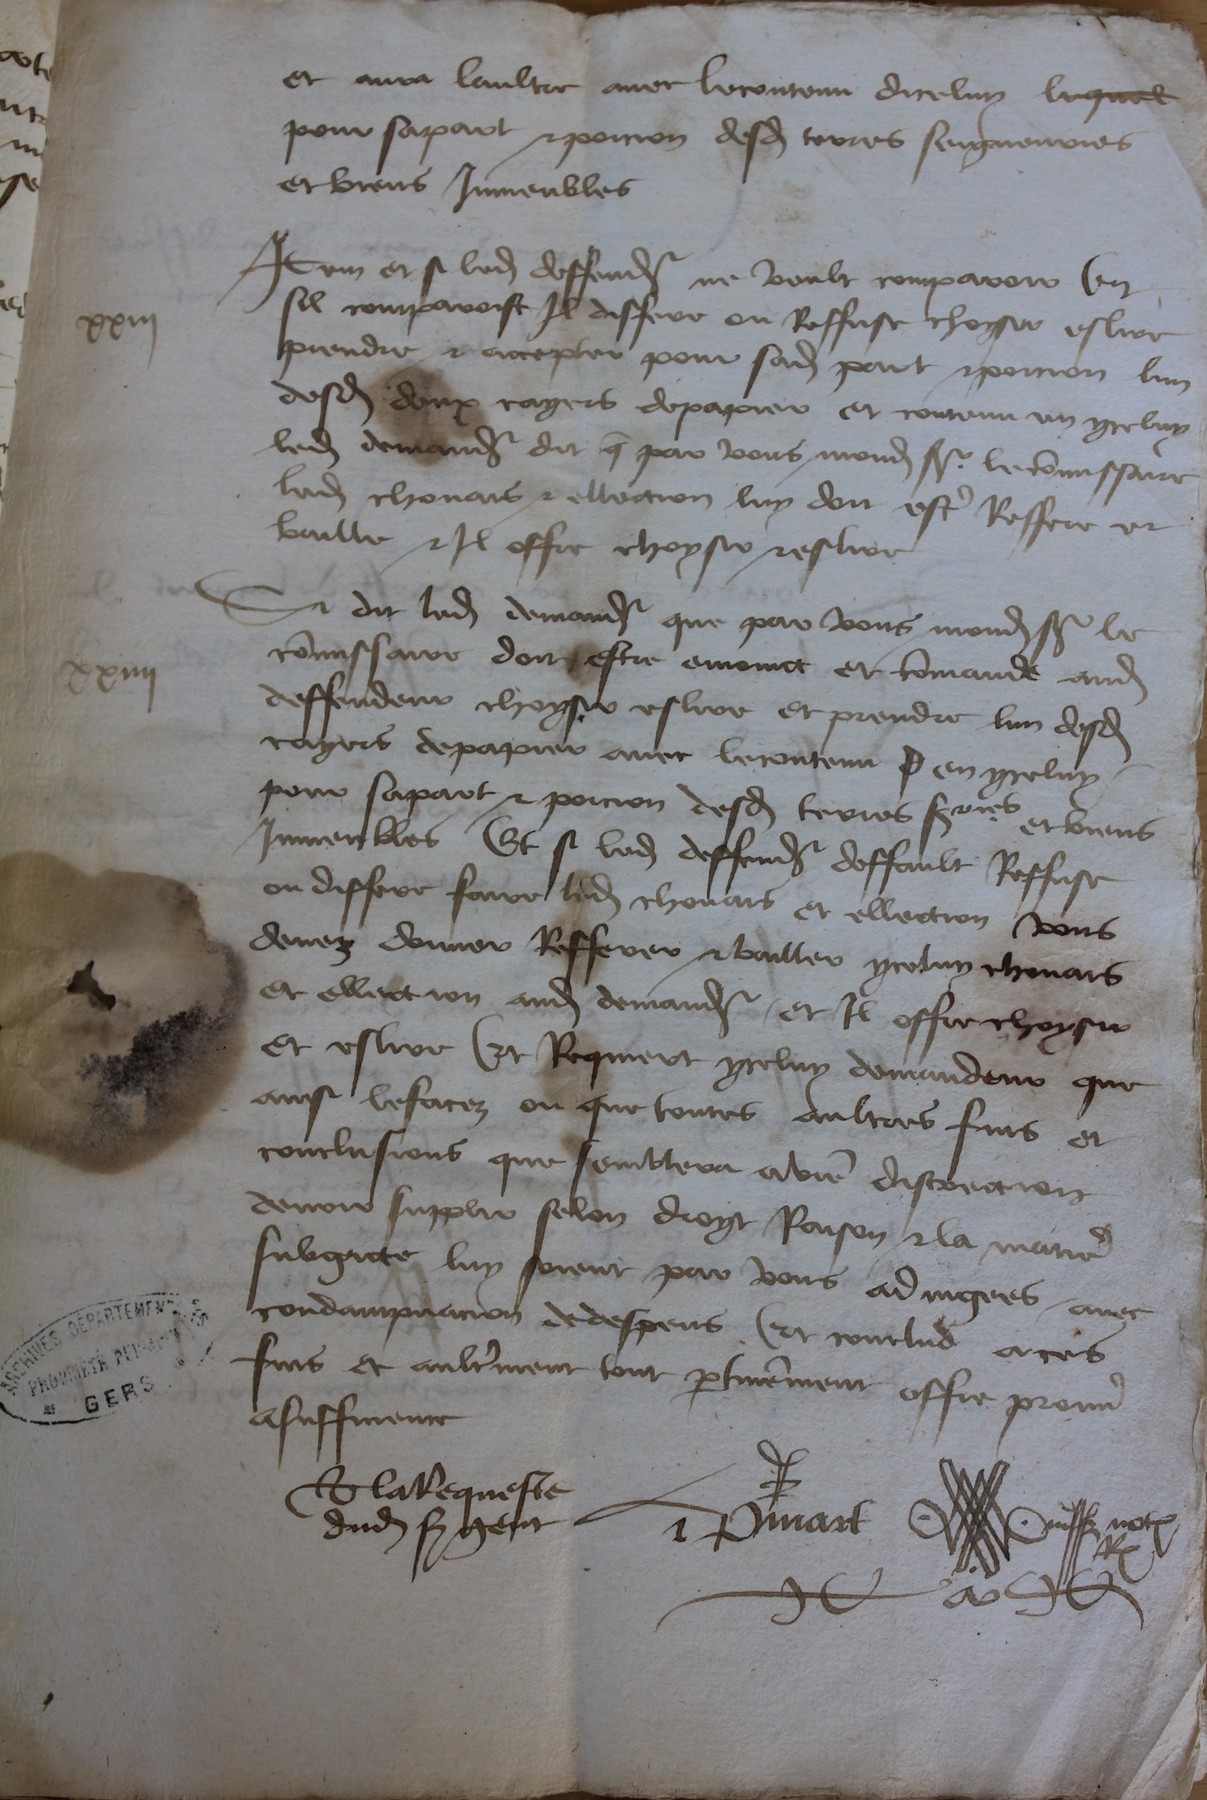 et aura laultre avec lecontenu diceluy lequel
pour sapart et porcion desd terres seigneuries
et biens Inmeubles
xxiii
Item et si led deffendr ne veult comparoir Et
sil comparoist Il differe ou Reffuse choysir eslire
prendre et accepter pour sad part et porcion lun
desd deux cayers depapier et contenu en yceluy
led demandr dit q par vous mond sr lecommissaire
led chouais et ellection luy doit estre Reffere et
baille et Il offre choysir et eslire
xxiiii
Et dit led demandr que par vous mond sr le
commissaire doit estre enioinct et comande aud
deffendeur choysir eslire et prendre lun desd
cayers depapier avec lecontenu en yceluy
pour sapart et porcion desd terres sries et biens
Inmeubles Et si led deffendr deffault Reffuse
ou differe faire led chouais et ellection vous
devez donner Refferer et bailler yceluy chouais
et ellection aud demandr et Il offre choysir
et eslire Et Requiert yceluy demandeur que
ainsi lefacez ou que toutes aultres fins et
conclusions que semblera avre discrection
devoir supplir selon droyt Raison et la matiere
subgecte luy soient par vous adiugees avec
condampnacion dedespens Et conclud aces
fins et aultrement tout pertinemment offre prouver
asuffisence
A laRequeste
dud sr gent
ARCHIVES DEPARTEMENTALES
GERS